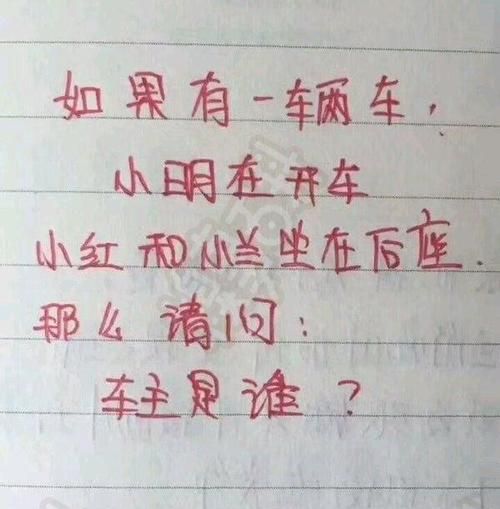 如果有一辆车,
小明在开车
小红和小兰坐在后座.
那么请问:
车主是谁?